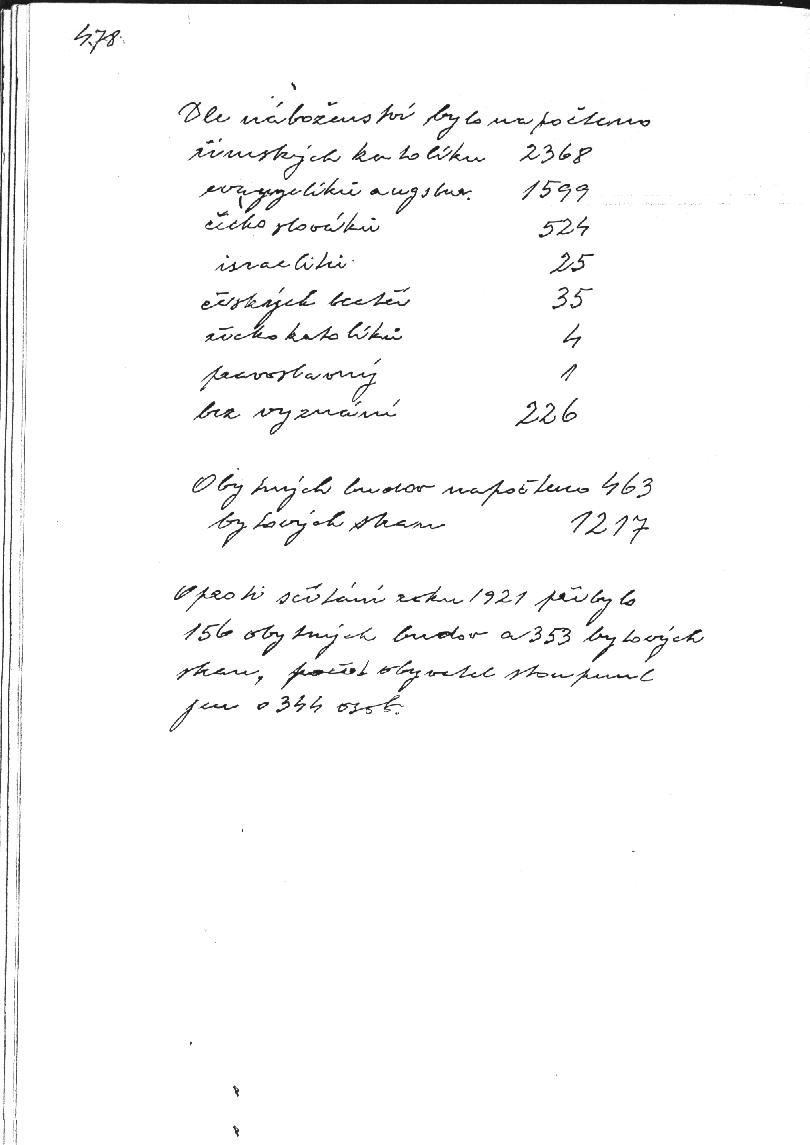 478.
Dle náboženství bylo napočteno
římských katolíku 2368
evangelíků augsbur. 1599
českoslováků 524
israeliti 25
českých bratří 35
řeckokatolíků 4
pravoslavný 1
bez vyznání 226
Obytných budov napočteno 463
bytových stran 1217
Oproti sčítání roku 1921 přibylo
156 obytných budov a 353 bytových
stran, počet obyvatel stoupnul
jen o 344 osob.